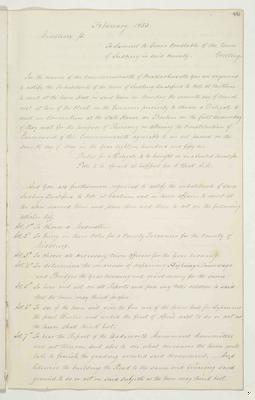 February 1853
Middlesex ss.
To Samuel D. Jones Constable of the Town
of Sudbury in said County. Greeting.
In the Name of the Commonwealth of Massachusetts you are required
to notify the Inhabitants of the town of Sudbury qualified to vote at Elections
to meet at the Town Hall in said town on Monday the seventh day of March
next at ten of the clock in the forenoon precisely to choose a Delegate to
meet in Convention at the State House in Boston on the first Wednesday
of May next for the purpose of Revising or altering the Constitution of
Government of this Commonwealth agreeable to an act passed on the
seventh day of May in the year eighteen hundred and fifty two
Votes for a Delegate to be brought in in sealed envelopes
Polls to be opened at half past ten o'clock A.M.
And you are furthermore required to notify the inhabitants of said
Sudbury qualified to vote at Elections and in town affairs to meet at
the above named time and place then and there to act on the following
articles Viz.
Art. 1st To Choose a Moderator
Art. 2d To bring in their Votes for a County Treasurer for the County of
Middlesex.
Art. 3d To Choose all necessary Town Officers for the year ensuing
Art. 4th To determine the manner of repairing Highways
and Bridges the year ensuing and raise money for the same
Art. 5 To hear and act on all Reports and pass any Votes relative to said
that the town may think proper.
Art. 6th To see if the town will give the
the and until the first of April next to do or act as
the town shall think best.
Art. 7th To hear the Report of the Wadsworth Monument Committee
and act thereon, and also to see what measures the town will
take to the grading around said Monument, And
likewise the building the Road to the same and fencing said
ground to do or act on said subjects as the town may think best.